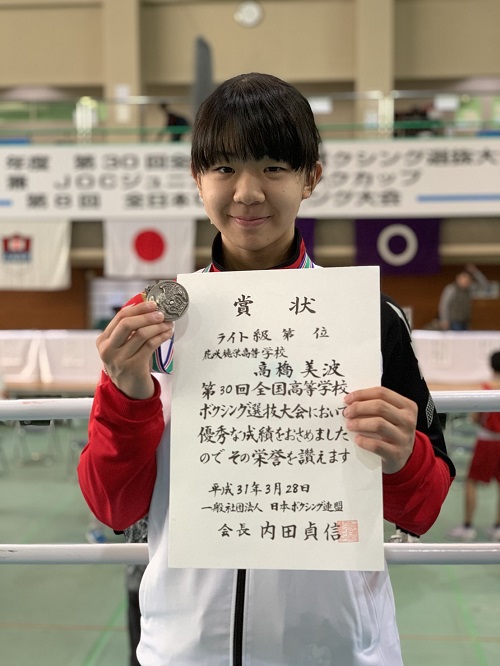 年度 第30回全 ボクシング選抜大
兼 JOCジュニ クカップ
第9回 全日本 ング大会
賞 状
ライト級 第 位
花咲徳栄高等学校
髙橋 美波
第30回全国高等学校
ボクシング選抜大会において
優秀な成績をおさめました
ので その栄誉を讃えます
平成31年3月28日
一般社団法人 日本ボクシング連盟
会長 内田貞信